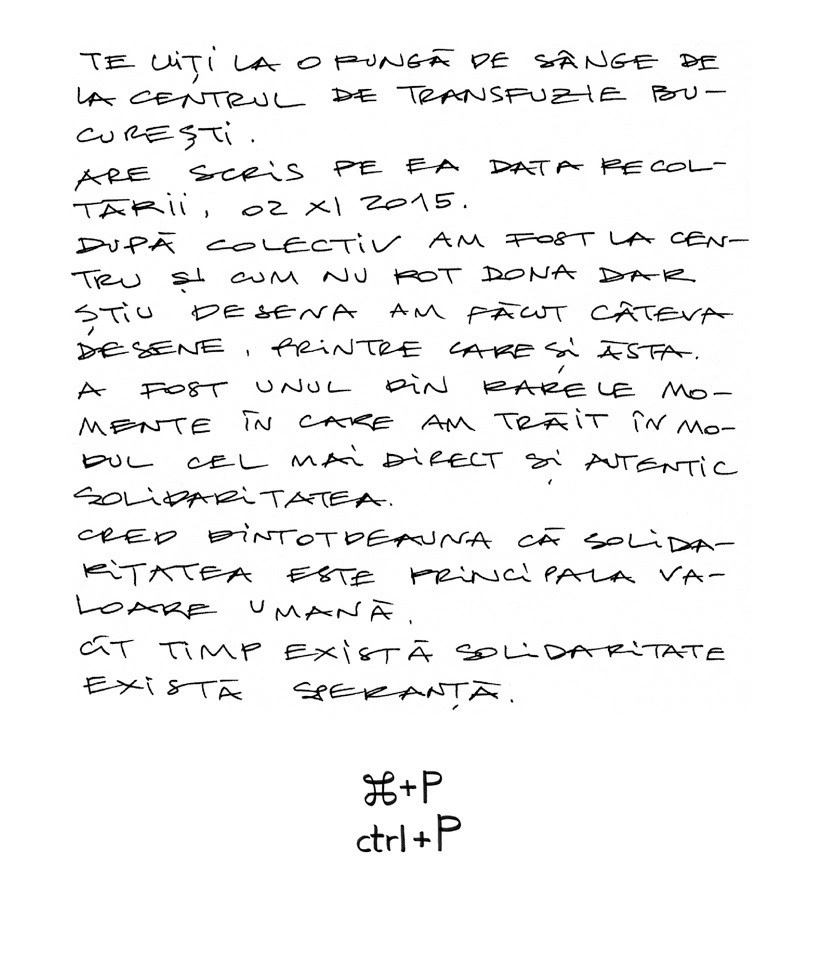 TE UIȚI LA O PUNGĂ DE SÂNGE DE
LA CENTRUL DE TRANSFUZIE BU-
CUREȘTI.
ARE SCRIS PE EA DATA RECOL-
TĂRII, 02 XI 2015.
DUPĂ COLECTIV AM FOST LA CEN-
TRU ȘI CUM NU POT DONA DAR
ȘTIU DESENA AM FĂCUT CÂTEVA
DESENE, PRINTRE CARE ȘI ĂSTA.
A FOST UNUL DIN RARELE MO-
MENTE ÎN CARE AM TRĂIT ÎN MO-
DUL CEL MAI DIRECT ȘI AUTENTIC
SOLIDARITATEA.
CRED DINTOTDEAUNA CĂ SOLIDA-
RITATEA ESTE PRINCIPALA VA-
LOARE UMANĂ.
CÂT TIMP EXISTĂ SOLIDARITATE
EXISTĂ SPERANȚĂ.
⌘+P
ctrl+P